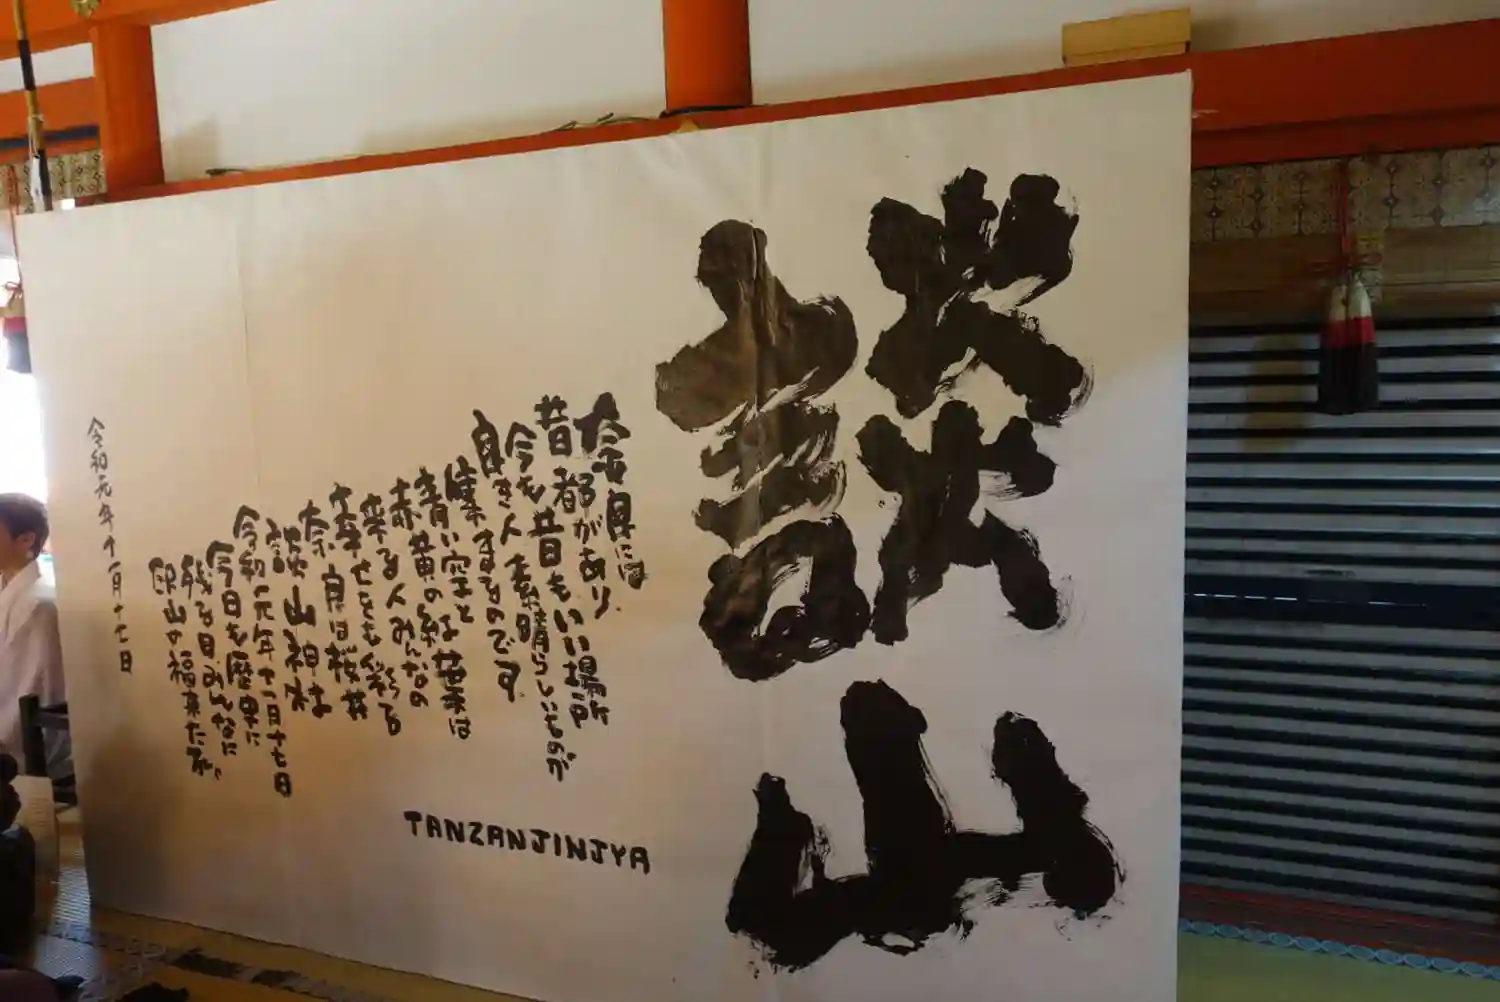 談山
奈良には
昔都があり
今も昔もいい場所
良き人素晴らしいものが
集まるのです
青い空と
赤黄の紅葉は
来る人みんなの
幸せをも彩る
奈良は桜井
談山神社
令和元年十一月十七日
今日も歴史に
残る日みんなに
山の福来たる
TANZANJINJYA
令和元年十一月十七日